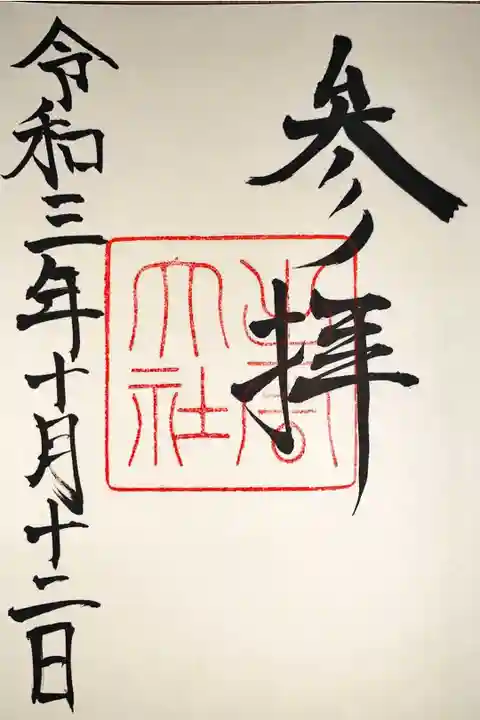 参拝
大社
令和三年十月十二日